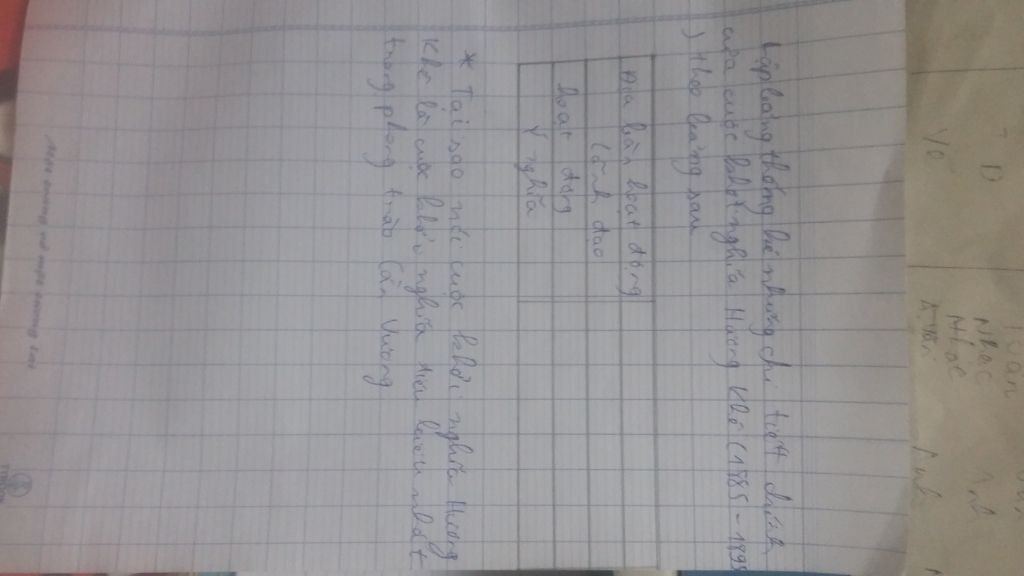 Lập bảng thống kê những chi tiết chính
của cuộc khởi nghĩa Hương Khê (1885 - 1895
) theo bảng sau
Địa bàn hoạt động
Lãnh đạo
hoạt động
Ý nghĩa
* Tại sao nói cuộc khởi nghĩa Hương
Khê là cuộc khởi nghĩa tiêu biểu nhất
trong phong trào Cần Vương